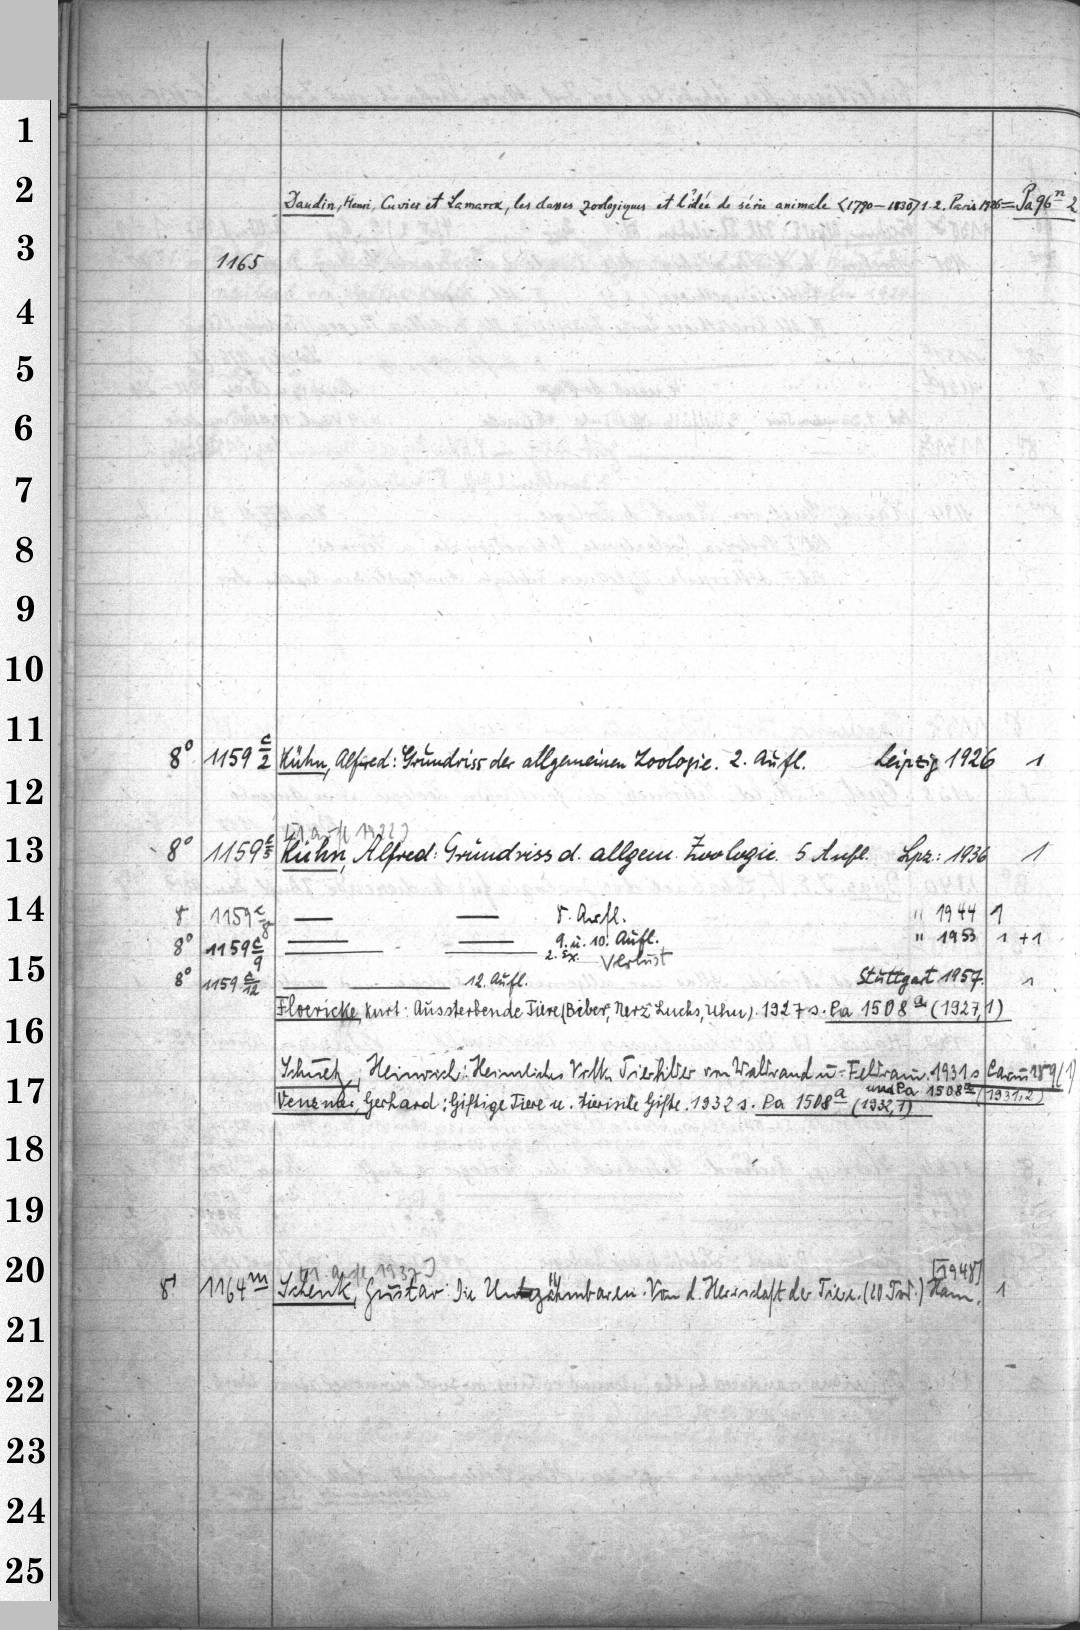 1
2 Daudin, Henri, Cuvier et Lamarck, les classes zoologiques et l'idée de série animale <1790-1830> 1. 2. Paris 1926 = Pa 96 n 2
3
1165
4
5
6
7
8
9
10
11
8° 1159 c/2 Kühn, Alfred: Grundriss der allgemeinen Zoologie. 2. Aufl. Leipzig 1926 1
12
[1. Aufl. 1922]
13 8° 1159 c/5 Kühn, Alfred: Grundriss d. allgem. Zoologie. 5 Aufl. Lpz: 1936 1
14 8 1159 c/8 — — 8. Aufl. " 1944 1
8° 1159 c/9 — — 9. u. 10. Aufl. " 1953 1 + 1
2. Ex. Verlust
15 8° 1159 c/12 — — 12. Aufl. Stuttgart 1957. 1
Floericke, Kurt: Aussterbende Tiere (Biber, Nerz, Luchs, Uhu). 1927 s. Pa 1508 a (1927,1)
16
Heinrich: Heimliches Volk. Tierbilder von Waldrand u. Feldrain. 1931 s
17 und Pa 1508 a (1931,2)
Venzmer, Gerhard: Giftige Tiere u. tierische Gifte. 1932 s. Pa 1508 a (1932,1)
18
19
20 [1. Aufl. 1937] [1948]
8° 1164 m Schenk, Gustav: Die Unbezähmbaren. Von d. Herrschaft der Tiere. (10 Tsd.) Hann. 1
21
22
23
24
25